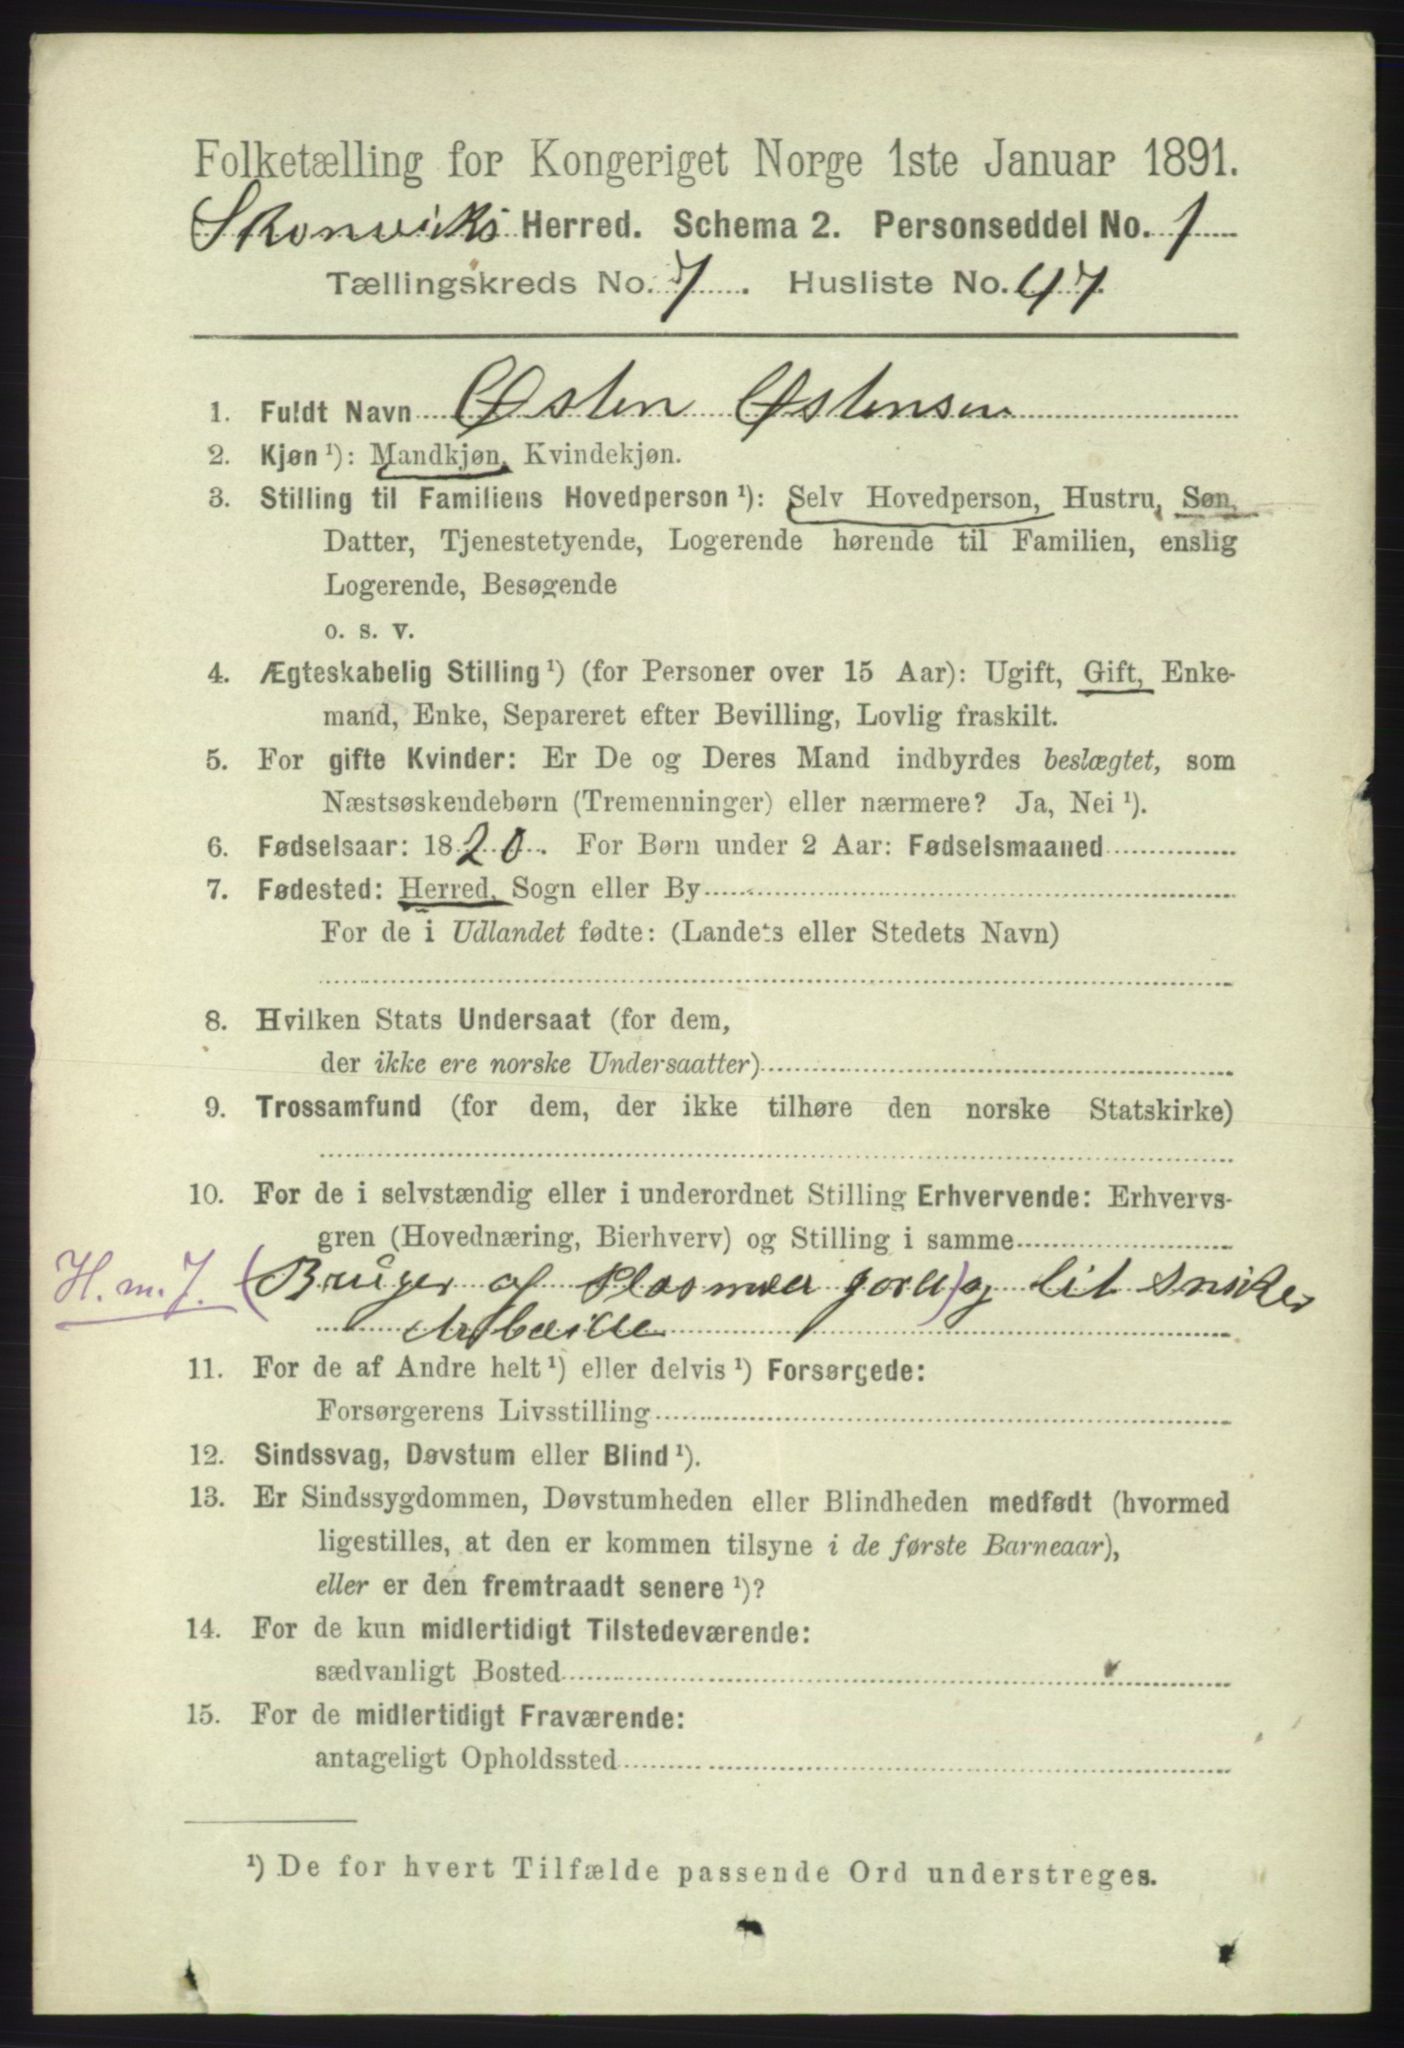 Folketælling for Kongeriget Norge 1ste Januar 1891.
Skonviks Herred. Schema 2. Personseddel No. 1
Tællingskreds No. 7. Husliste No. 47.
1. Fuldt Navn Østen Østensen
2. Kjøn ¹): Mandkjøn, Kvindekjøn.
3. Stilling til Familiens Hovedperson ¹): Selv Hovedperson, Hustru, Søn,
Datter, Tjenestetyende, Logerende hørende til Familien, enslig
Logerende, Besøgende
o. s. v.
4. Ægteskabelig Stilling ¹) (for Personer over 15 Aar): Ugift, Gift, Enke-
mand, Enke, Separeret efter Bevilling, Lovlig fraskilt.
5. For gifte Kvinder: Er De og Deres Mand indbyrdes beslægtet, som
Næstsøskendebørn (Tremenninger) eller nærmere? Ja, Nei ¹).
6. Fødselsaar: 1820. For Børn under 2 Aar: Fødselsmaaned
7. Fødested: Herred, Sogn eller By
For de i Udlandet fødte: (Landets eller Stedets Navn)
8. Hvilken Stats Undersaat (for dem,
der ikke ere norske Undersaatter)
9. Trossamfund (for dem, der ikke tilhøre den norske Statskirke)
10. For de i selvstændig eller i underordnet Stilling Erhvervende: Erhvervs-
gren (Hovednæring, Bierhverv) og Stilling i samme
H. m. J. (Bruger af Plas med jord) og lit Snicker
Arbeide
11. For de af Andre helt ¹) eller delvis ¹) Forsørgede:
Forsørgerens Livsstilling
12. Sindssvag, Døvstum eller Blind ¹).
13. Er Sindssygdommen, Døvstumheden eller Blindheden medfødt (hvormed
ligestilles, at den er kommen tilsyne i de første Barneaar),
eller er den fremtraadt senere ¹)?
14. For de kun midlertidigt Tilstedeværende:
sædvanligt Bosted
15. For de midlertidigt Fraværende:
antageligt Opholdssted
¹) De for hvert Tilfælde passende Ord understreges.